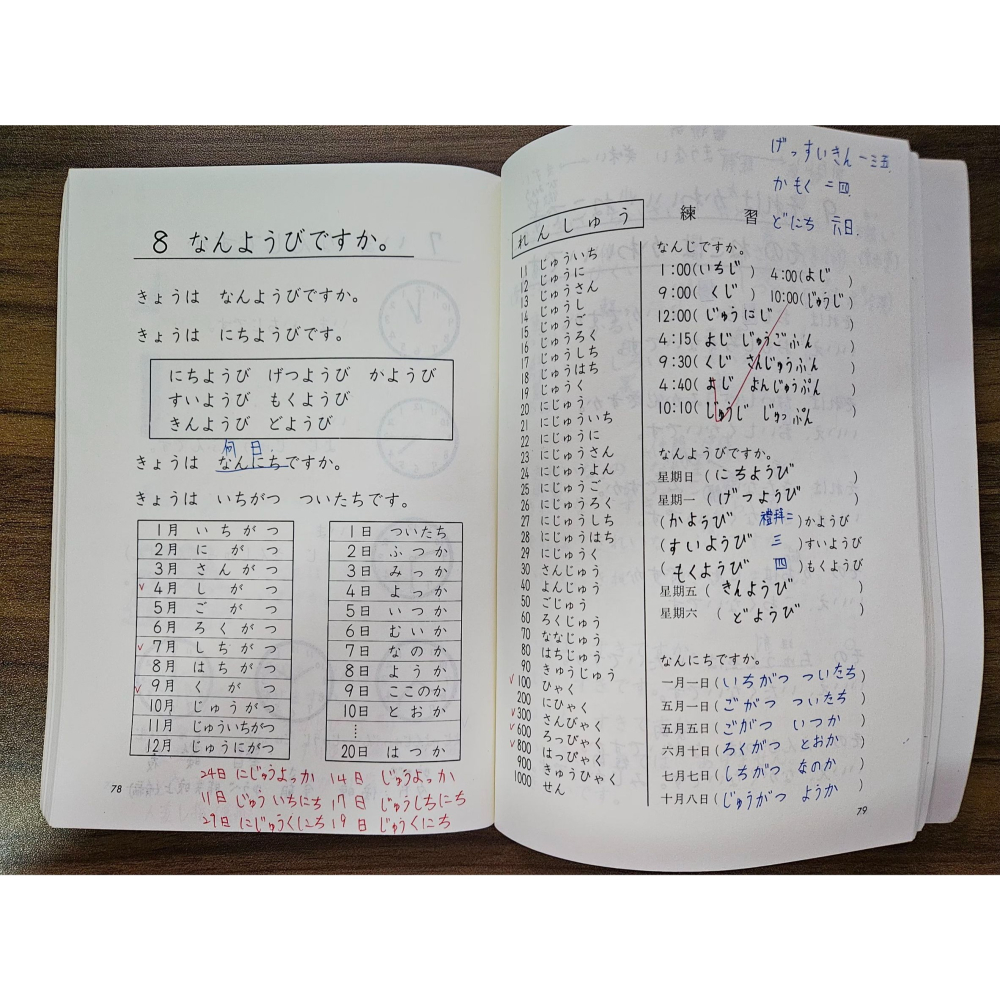 8 なんようびですか。
きょうは なんようびですか。
きょうは にちようびです。
にちようび げつようび かようび
すいようび もくようび
きんようび どようび
何 日
きょうは なんにちですか。
きょうは いちがつ ついたちです。
1月 いちがつ
2月 にがつ
3月 さんがつ
4月 しがつ
5月 ごがつ
6月 ろくがつ
7月 しちがつ
8月 はちがつ
9月 くがつ
10月 じゅうがつ
11月 じゅういちがつ
12月 じゅうにがつ
1日 ついたち
2日 ふつか
3日 みっか
4日 よっか
5日 いつか
6日 むいか
7日 なのか
8日 ようか
9日 ここのか
10日 とおか
⋮
20日 はつか
24日 にじゅうよっか 14日 じゅうよっか
11日 じゅういちにち 17日 じゅうしちにち
29日 にじゅうくにち 19日 じゅうくにち
78
げっすいきん 一三五
かもく 二四
どにち 六日
れんしゅう
11 じゅういち
12 じゅうに
13 じゅうさん
14 じゅうし
15 じゅうご
16 じゅうろく
17 じゅうしち
18 じゅうはち
19 じゅうく
20 にじゅう
21 にじゅういち
22 にじゅうに
23 にじゅうさん
24 にじゅうよん
25 にじゅうご
26 にじゅうろく
27 にじゅうしち
28 にじゅうはち
29 にじゅうく
30 さんじゅう
40 よんじゅう
50 ごじゅう
60 ろくじゅう
70 ななじゅう
80 はちじゅう
90 きゅうじゅう
100 ひゃく
200 にひゃく
300 さんびゃく
600 ろっぴゃく
800 はっぴゃく
900 きゅうひゃく
1000 せん
練 習
なんじですか。
1:00(いちじ) 4:00(よじ)
9:00(くじ) 10:00(じゅうじ)
12:00(じゅうにじ)
4:15(よじ じゅうごふん)
9:30(くじ さんじゅうふん)
4:40(よじ よんじゅうぷん)
10:10(じゅうじ じゅっぷん)
なんようびですか。
星期日(にちようび)
星期一(げつようび)
(かようび 禮拜二)かようび
(すいようび 三)すいようび
(もくようび 四)もくようび
星期五(きんようび)
星期六(どようび)
なんにちですか。
一月一日(いちがつ ついたち)
五月一日(ごがつ ついたち)
五月五日(ごがつ いつか)
六月十日(ろくがつ とおか)
七月七日(しちがつ なのか)
十月八日(じゅうがつ ようか)
79